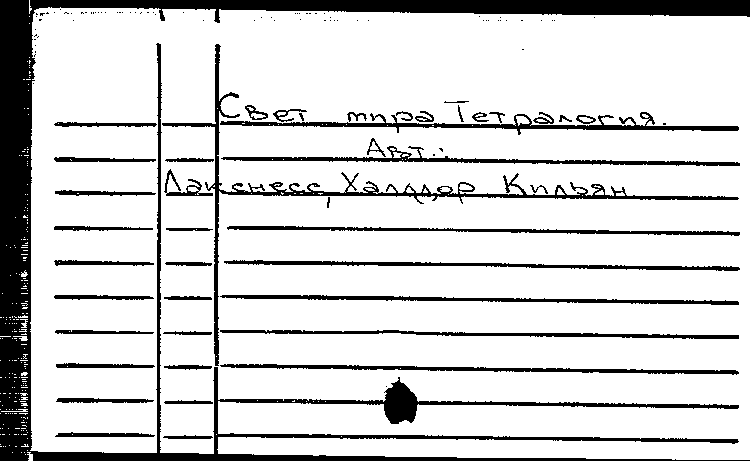 Свет мира. Тетралогия.
Авт.:
Лакснесс, Халлдор Кильян